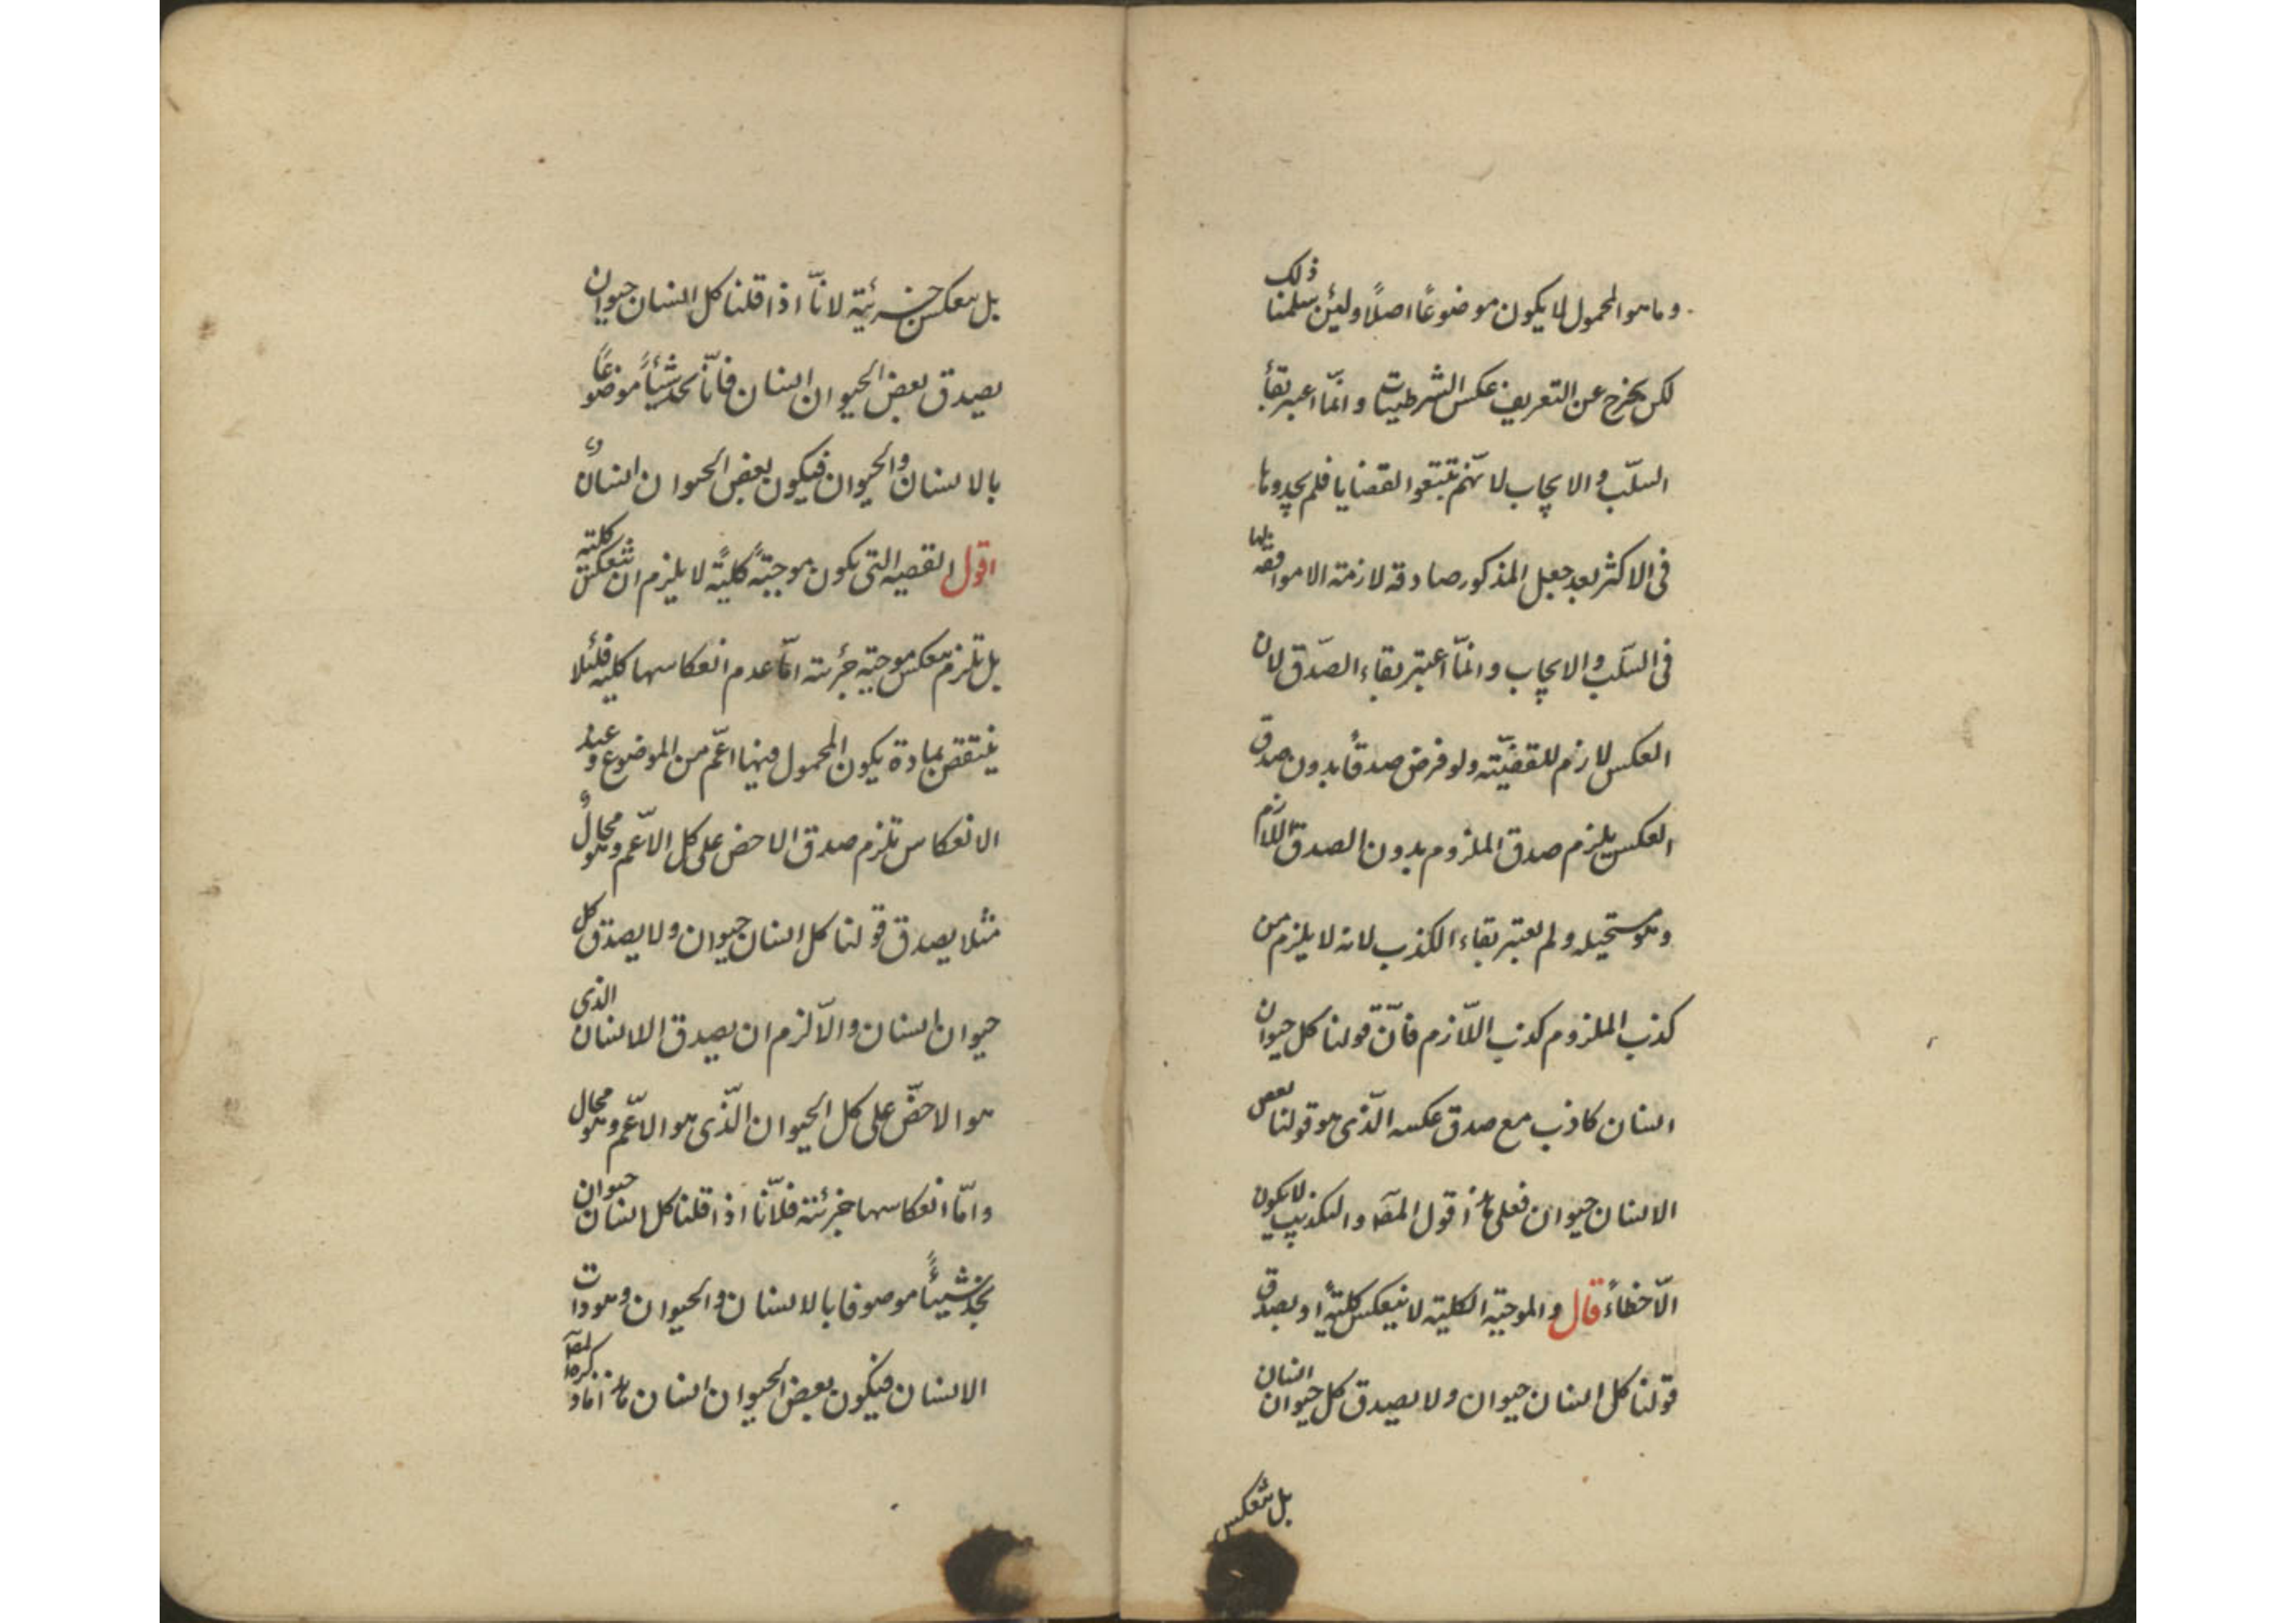 وما هو المحمول لا يكون موضوعًا اصلًا ولئن سلمنا ذلك
لكن يخرج عن التعريف عكس الشرطيات وانّما اعبر بقاء
السلّب والايجاب لانّهم تتبّعوا القضايا فلم يجدوها
فى الاكثر بعد جعل المذكور صادقه لازمته الا موافقه لها
فى السّلب والايجاب وانمّا اعتبر بقاء الصّدق لان
العكس لازم للقضيّته ولو فرض صدقاً بدون صدق
العكس يلزم صدق الملزوم بدون الصدق اللازم
وهو مستحيله ولم يعتبر بقاء الكذب لانه لا يلزم من
كذب الملزوم كذب اللّازم فانّ قولنا كل حيوان
انسان كاذب مع صدق عكسه الّذى هو قولنا بعض
الانسان حيوان فعلى هذا قول المص والتكذيب لا يكون
الّا خطاءً قال والموجبة الكلية لا ينعكس كليةً او يصدق
قولنا كل انسان حيوان ولا يصدق كل حيوان انسان
بل تنعكس
بل ينعكس جزئية لانّا اذا قلنا كل انسان حيوان
يصدق بعض الحيوان انسان فانّا نجد شيئاً موضوعًا
بالانسان والحيوان فيكون بعض الحيوان انسان
اقول القضيه التى يكون موجبتةً كليةً لا يلزم ان تنعكس كليته
بل تلزم ينعكس موجبة جزئية امّا عدم انعكاسها كليه فلئلا
ينتقض بمادة يكون المحمول فيها اعّم من الموضوع وعند
الانعكاس تلزم صدق الاخص على كل الاعّم وهو محال
مثلا يصدق قولنا كل انسان حيوان ولا يصدق كل
حيوان انسان والّا لزم ان يصدق الانسان الذى
هو الاخصّ على كل الحيوان الّذى هو الاعّم وهو محال
وامّا انعكاسها جزئية فلانّا اذا قلنا كل انسان حيوان
نجد شيئاً موصوفا بالانسان والحيوان وهو ذات
الانسان فيكون بعض الحيوان انسان هذا ما ذكره المص